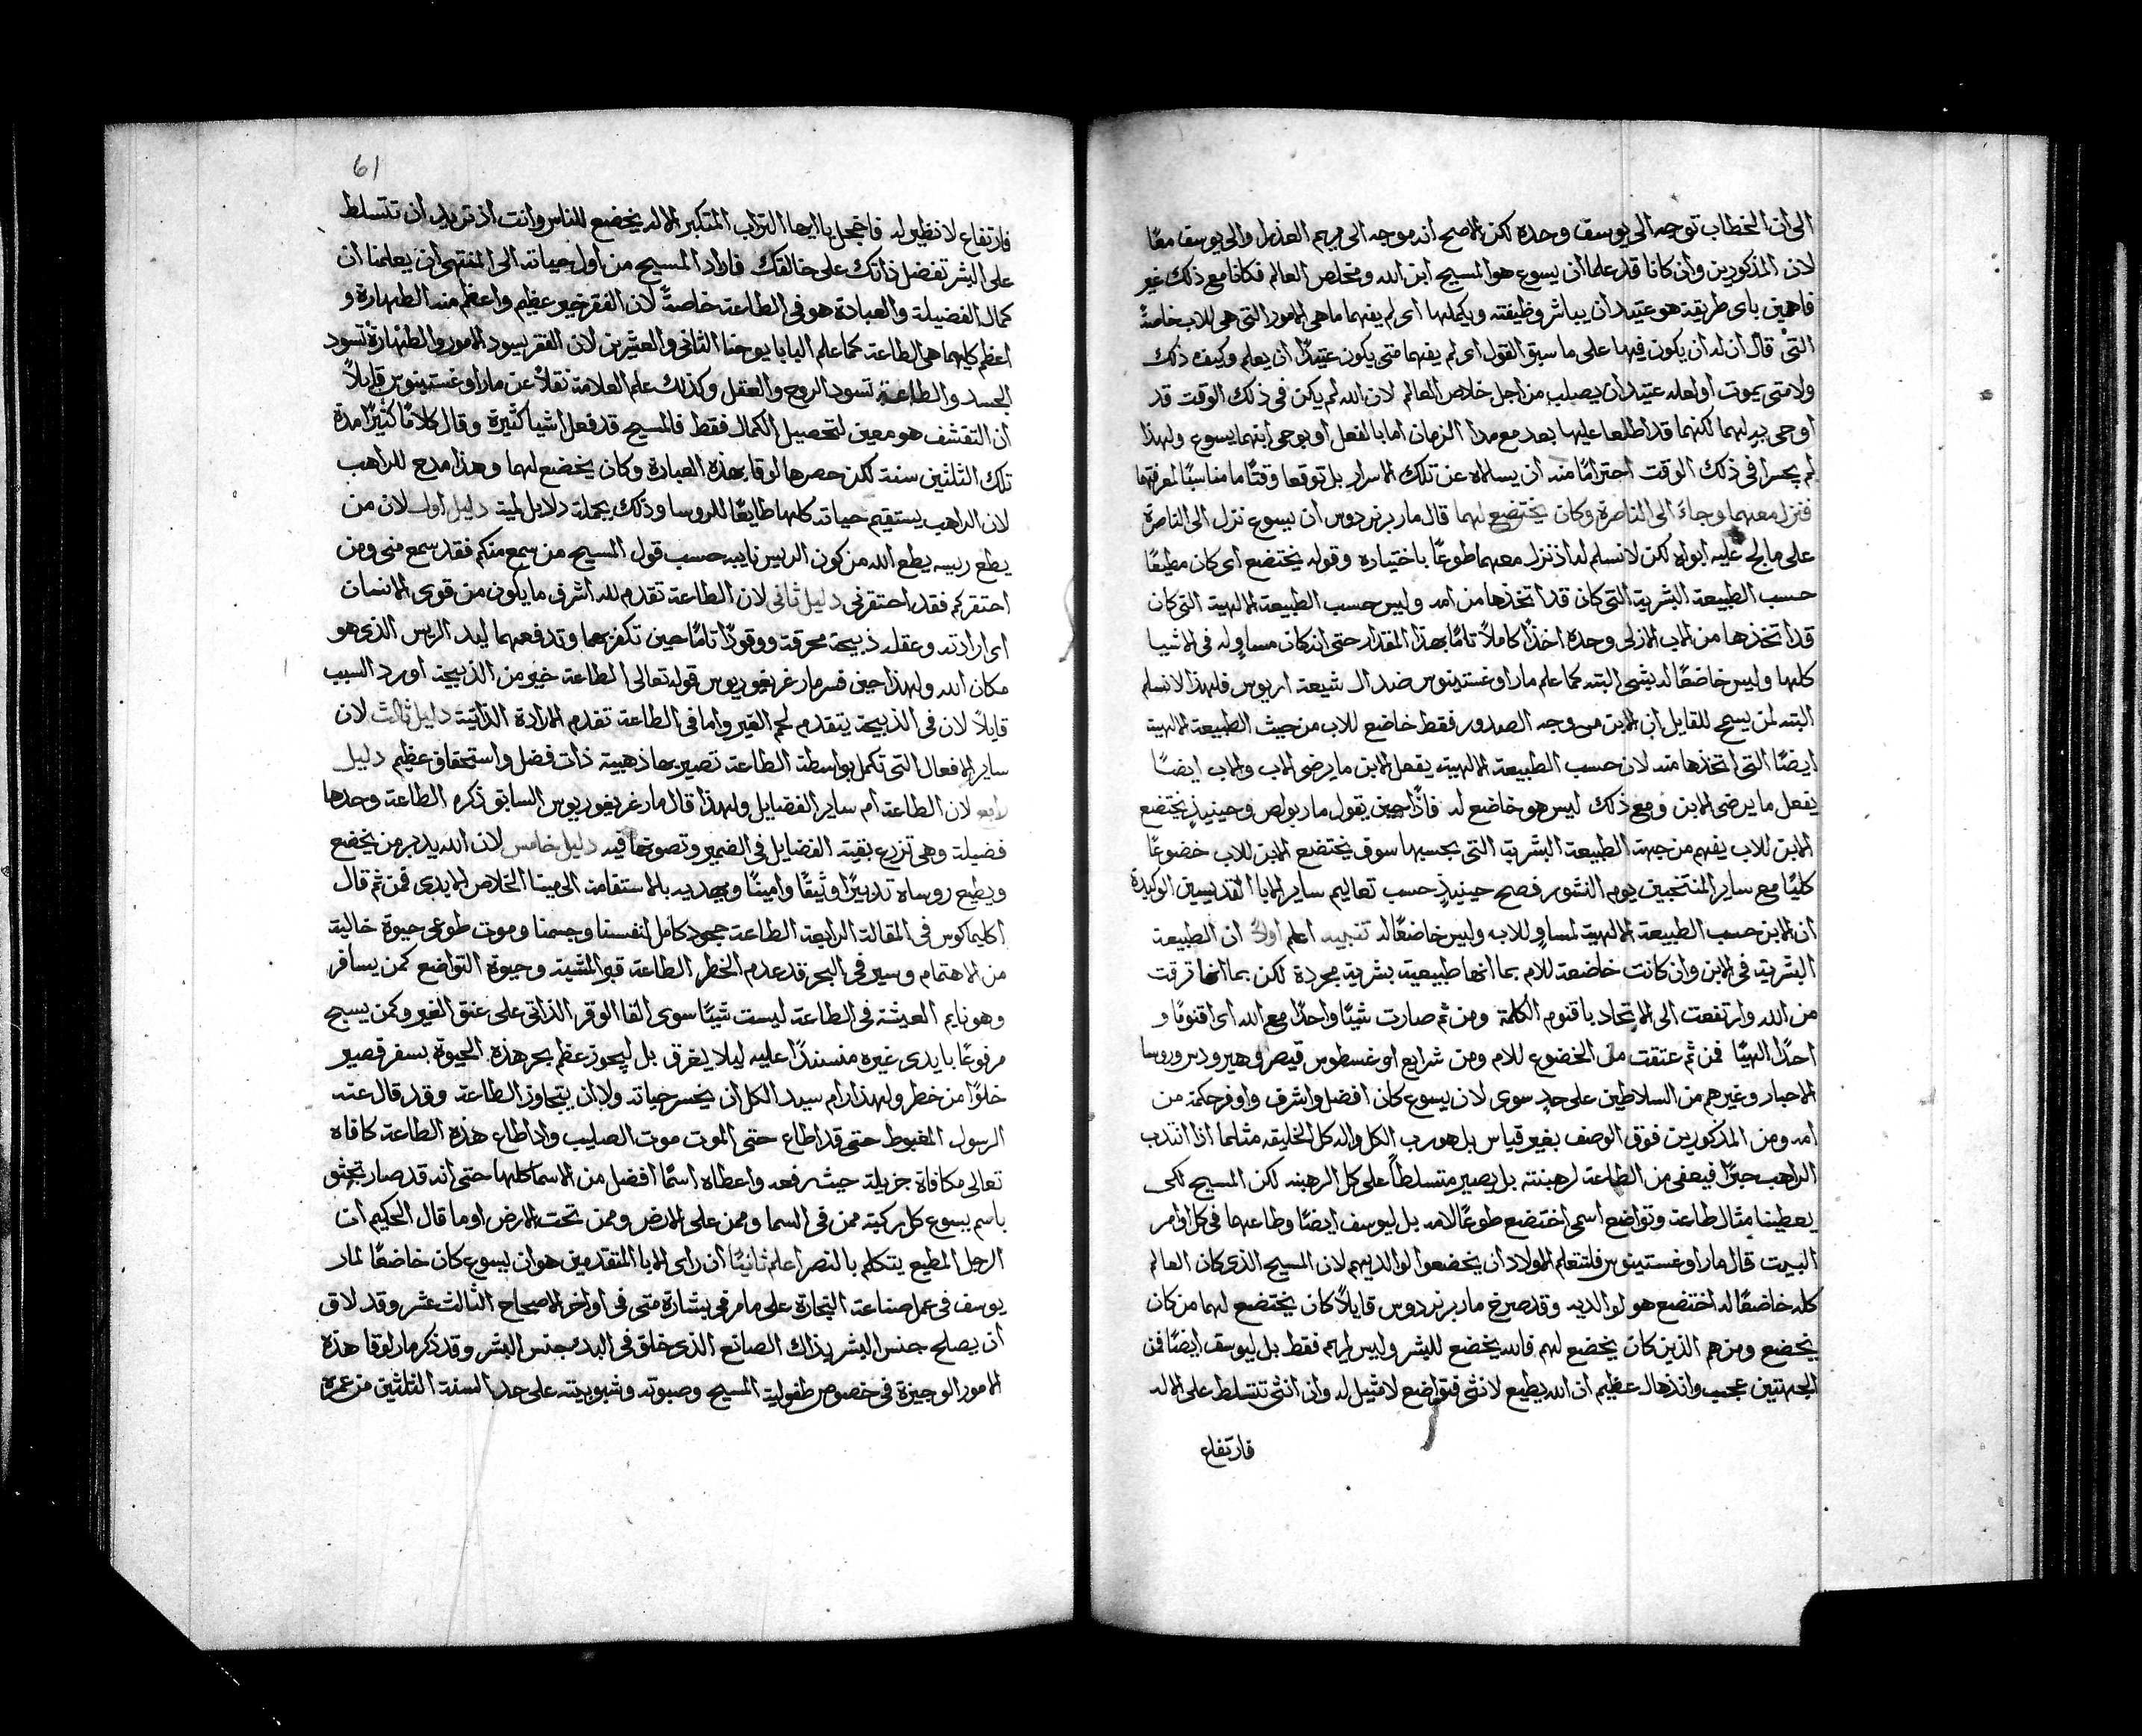 الى ان الخطاب توجه الى يوسف وحده لكن الاصح انه موجه الى مريم العذرا والى يوسف معًا
لان المذكورين وان كانا قد علما ان يسوع هو المسيح ابن الله ومخلص العالم فكانا مع ذلك غير
فاهمين باى طريقة هو عتيد ان يباشر وظيفته ويكملها اى لم يفهما ما هى الامور التى هى للاب خاصةً
التى قال ان له ان يكون فيها على ما سبق القول اى لم يفهما متى يكون عتيدًا ان يعلم وكيف ذلك
ولا متى يموت او لعله عتيد ان يصلب من اجل خلاص العالم لان الله لم يكن فى ذلك الوقت قد
اوحى به لهما لكنهما قد اطلعا عليها بعد مع مدا الزمان اما بالفعل او بوحى ابنهما يسوع ولهذا
لم يجسرا فى ذلك الوقت احترامًا منه ان يسالاه عن تلك الاسرار بل توقعا وقتًا ما مناسبًا لمعرفتها
فنزل معهما وجاء الى الناصرة وكان يختضع لهما قال مار برنردوس ان يسوع نزل الى الناصرة
على ما لج عليه ابواه لكن لا نسلم له اذ نزل معهما طوعًا باختياره وقوله يختضع اى كان مطيعًا
حسب الطبيعة البشرية التى كان قد اتخذها من امه وليس حسب الطبيعة الالهية التى كان
قد اتخذها من الاب الازلى وحده اخذًا كاملاً تامًا بهذا المقدار حتى انه كان مساوٍ له فى الاشيا
كلها وليس خاضعًا له بشى البته كما علم مار اوغستينوس ضد الـ شيعة اريوس فلهذا لا نسلم
البته لمن يسمح للقايل ان الابن من وجه الصدور فقط خاضع للاب من حيث الطبيعة الالهية
ايضًا التى اتخذها منه لان حسب الطبيعة الالهية يفعل الابن ما يرضى الاب والاب ايضًا
يفعل ما يرضى الابن ومع ذلك ليس هو خاضع له فاذًا حين يقول مار بولص وحينيذٍ يختضع
الابن للاب يفهم من جهة الطبيعة البشرية التى بحسبها سوف يختضع الابن للاب خضوعًا
كليًا مع ساير المنتخبين يوم النشور فصح حينيذٍ حسب تعاليم ساير الابا القديسين الوكيدة
ان الابن حسب الطبيعة الالهية لمساوٍ للاب وليس خاضعًا له تنبيه اعلم اولاً ان الطبيعة
البشرية فى الابن وان كانت خاضعة للام بما انها طبيعية بشرية مجردة لكن بما انها ترقت
من الله وارتفعت الى الاتحاد باقنوم الكلمة ومن ثم صارت شيًا واحدًا مع الله اى اقنومًا و
احدًا الهيًا فمن ثم عتقت من الخضوع للام ومن شرايع اوغسطوس قيصر وهيرودس وروسا
الاحبار وغيرهم من السلاطين على حدٍ سوى لان يسوع كان افضل واشرف واوفر حكمة من
امه ومن المذكورين فوق الوصف بغير قياس بل هو رب الكل واله كل الخليقه مثلما اذا انتدب
الراهب حبرًا فيعفى من الطاعة لرهبنته بل يصير متسلطًا على كل الرهبنه لكن المسيح لكى
يعطينا مثال طاعة وتواضع اسمى اختضع طوعًا لامه بل ليوسف ايضًا وطاعهما فى كل اوامر
البيت قال مار اوغستينوس فلتتعلم الاولاد ان يخضعوا لوالديهم لان المسيح الذى كان العالم
كله خاضعًا له اختضع هو لوالديه وقد صرخ مار برنردوس قايلاً كان يختضع لهما من كان
يخضع ومن هم الذين كان يخضع لهم فالله يخضع للبشر وليس لمريم فقط بل ليوسف ايضًا فمن
الجهتين عجيب وانذهال عظيم ان الله يطيع لانثى فتواضع لا مثيل له وان انثى تتسلط على الاله
فارتفاع
61
فارتفاع لا نظير له فاخجل يا ايها التراب المتكبر الاله يخضع للناس وانت اذ تريد ان تتسلط
على البشر تفضل ذاتك على خالقك فاراد المسيح من اول حياته الى المنتهى ان يعلمنا ان
كمال الفضيلة والعبادة هو فى الطاعة خاصةً لان الفقر خير عظيم واعظم منه الطهارة و
اعظم كليهما هى الطاعة كما علم البابا يوحنا الثانى والعشرين لان الفقر يسود الامور والطهارة تسود
الجسد والطاعة تسود الروح والعقل وكذلك علم العلامة نقلاً عن مار اوغستينوس قايلاً
ان التقشف هو معين لتحصيل الكمال فقط فالمسيح قد فعل اشيا كثيرة وقال كلامًا كثيرًا مدة
تلك الثلثين سنة لكن حصرها لوقا بهذه العبارة وكان يخضع لهما وهذا مدح للراهب
لان الراهب يستقيم حياته كلها طايعًا للروسا وذلك بجملة دلايل لمية دليل اول لان من
يطع ريسه يطع الله من كون الريس نايبه حسب قول المسيح من سمع منكم فقد سمع منى ومن
احتقركم فقد احتقرنى دليل ثانى لان الطاعة تقدم لله اشرف ما يكون من قوى الانسان
اى ارادته وعقله ذبيحة محرقة ووقودًا تامًا حين تكفر بهما وتدفعهما ليد الريس الذى هو
مكان الله ولهذا حين فسر مار غريغوريوس قوله تعالى الطاعة خير من الذبيحة اورد السبب
قايلاً لان فى الذبيحة يتقدم لحم الغير واما فى الطاعة تقدم الارادة الذاتية دليل ثالث لان
ساير الافعال التى تكمل بواسطة الطاعة تصير بها ذهبية ذات فضل واستحقاق عظيم دليل
رابع لان الطاعة ام ساير الفضايل ولهذا قال مار غريغوريوس السابق ذكره الطاعة وحدها
فضيلة وهى تزرع بقية الفضايل فى الضمير وتصونها فيه دليل خامس لان الله يدبر من يخضع
ويطيع روساه تدبيرًا وثيقًا وامينًا ويهديه بالاستقامة الى مينا الخلاص الابدى فمن ثم قال
اكليماكوس فى المقالة الرابعة الطاعة جحود كامل لنفسنا وجسمنا وموت طوعى حيوة خالية
من الاهتمام وسير فى البحر قد عدم الخطر الطاعة قبر المشية وحيوة التواضع كمن يسافر
وهو نايم العيشة فى الطاعة ليست شيًا سوى القا الوقر الذاتى على عنق الغير وكمن يسبح
مرفوعًا بايدى غيره منسندًا عليه ليلا يغرق بل ليجوز عظم بحر هذه الحيوة بسفر قصير
خلوًا من خطر ولهذا رام سيد الكل ان يخسر حياته ولا ان يتجاوز الطاعة وقد قال عنه
الرسول المغبوط حتى قد اطاع حتى الموت موت الصليب واذ اطاع هذه الطاعة كافاه
تعالى مكافاة جزيلة حيث رفعه واعطاه اسمًا افضل من الاسما كلها حتى انه قد صار تجثو
باسم يسوع كل ركبة ممن فى السما وممن على الارض وممن تحت الارض اوما قال الحكيم ان
الرجل المطيع يتكلم بالنصر اعلم ثانيًا ان راى الابا المتقدمين هو ان يسوع كان خاضعًا لمار
يوسف فى عمل صناعة النجارة على ما مر فى بشارة متى فى اواخر الاصحاح الثالث عشر وقد لاق
ان يصلح جنس البشر بذاك الصانع الذى خلق فى البدء جنس البشر وقد ذكر مار لوقا هذه
الامور الوجيزة فى خصوص طفولية المسيح وصبوته وشبوبيته على حد السنة الثلثين من عمره